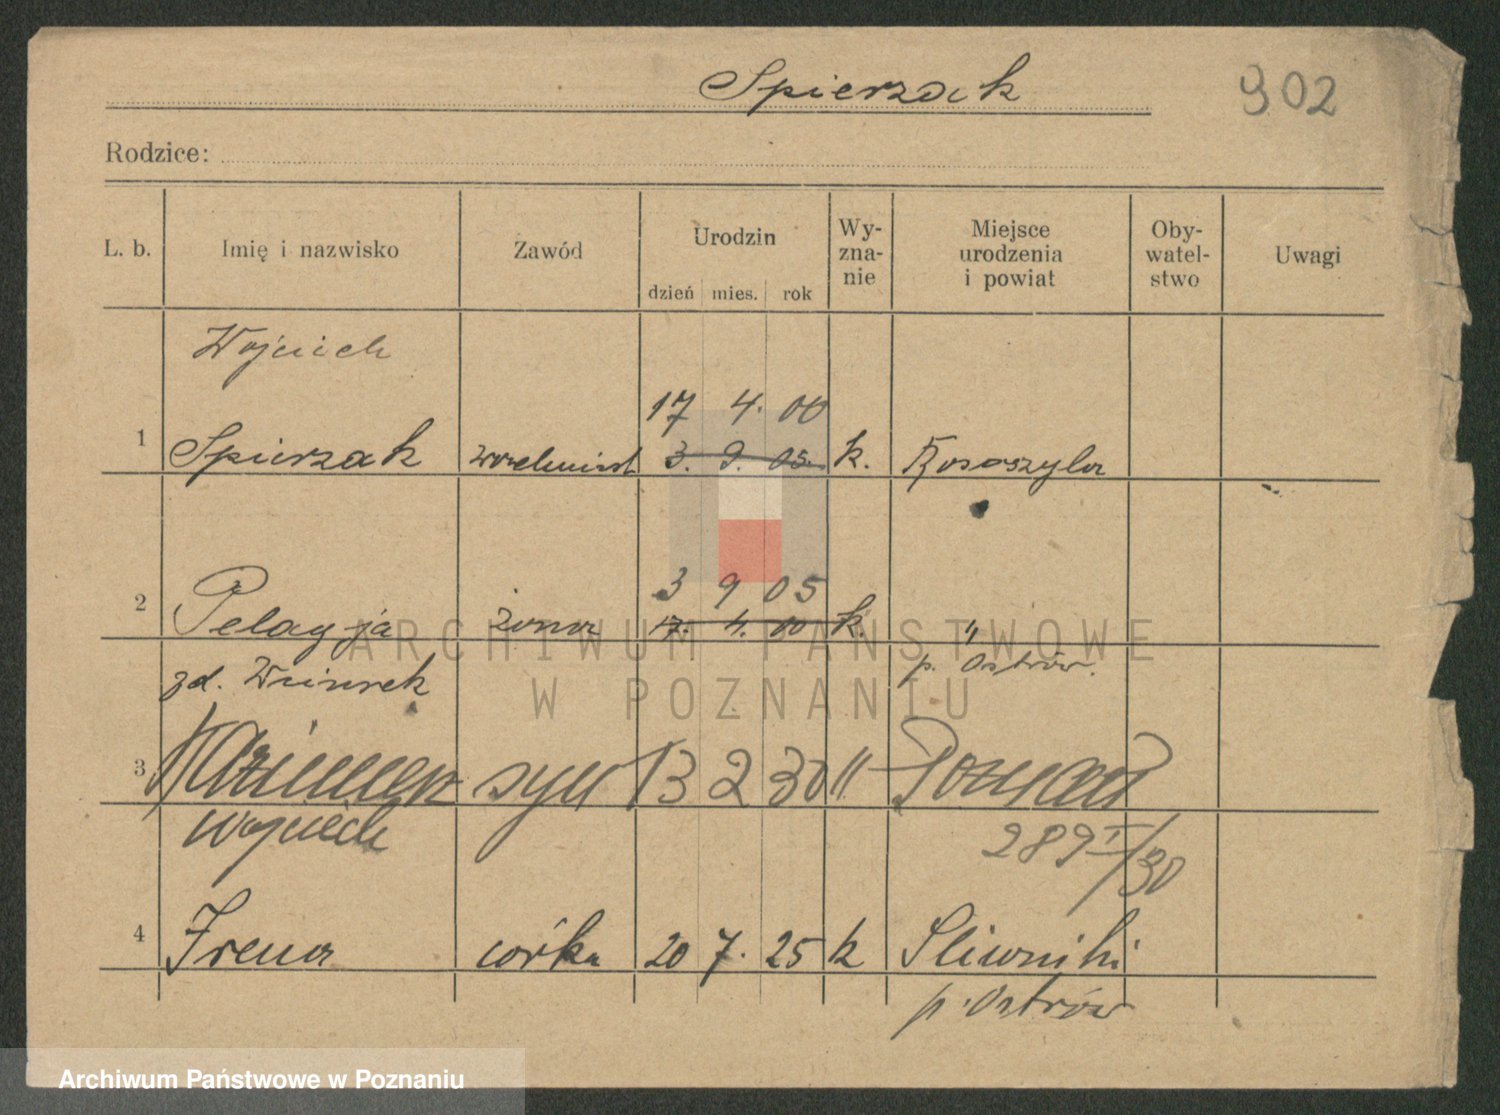 Spierzak 902
Rodzice:
L. b. Imię i nazwisko Zawód Urodzin Wy-zna-nie Miejsce urodzenia i powiat Oby-watel-stwo Uwagi
dzień mies. rok
Wojciech
17 4. 00
1 Spierzak 3. 9. 05. k. Rososzyca
3 9 05
2 Pelagja żona 17. 4. 00 k. "
zd. p. Ostrów.
3 Kazimierz syn 13 2 30 " Poznań
Wojciech 289 I/30
4 Irena córka 20 7. 25 k Śliwniki
p. Ostrów
ARCHIWUM PAŃSTWOWE
W POZNANIU
Archiwum Państwowe w Poznaniu